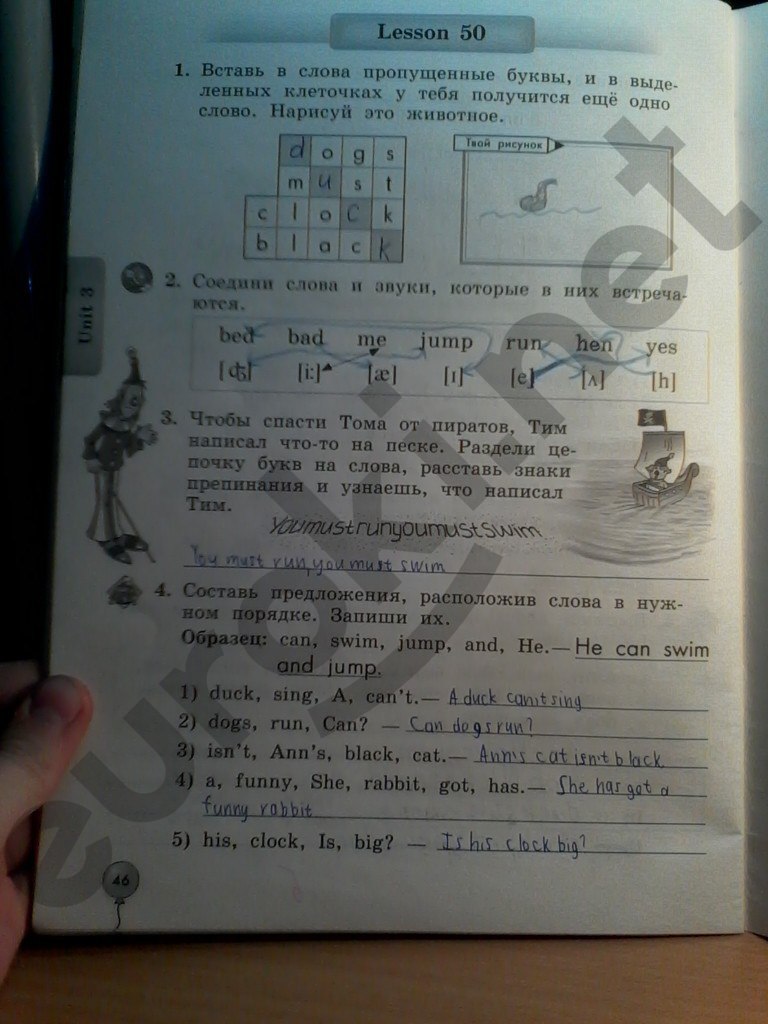 Lesson 50
1. Вставь в слова пропущенные буквы, и в выде-
ленных клеточках у тебя получится ещё одно
слово. Нарисуй это животное.
d o g s
m u s t
c l o c k
b l a c k
Твой рисунок
Unit 3
2. Соедини слова и звуки, которые в них встреча-
ются.
bed bad me jump run hen yes
[ʤ] [i:] [æ] [ɪ] [e] [ʌ] [h]
3. Чтобы спасти Тома от пиратов, Тим
написал что-то на песке. Раздели це-
почку букв на слова, расставь знаки
препинания и узнаешь, что написал
Тим.
Youmustrunyoumustswim
You must run, you must swim
4. Составь предложения, расположив слова в нуж-
ном порядке. Запиши их.
Образец: can, swim, jump, and, He. — He can swim
and jump.
1) duck, sing, A, can't. — A duck can't sing
2) dogs, run, Can? — Can dogs run?
3) isn't, Ann's, black, cat. — Ann's cat isn't black
4) a, funny, She, rabbit, got, has. — She has got a
funny rabbit
5) his, clock, Is, big? — Is his clock big?
46
euroki.net